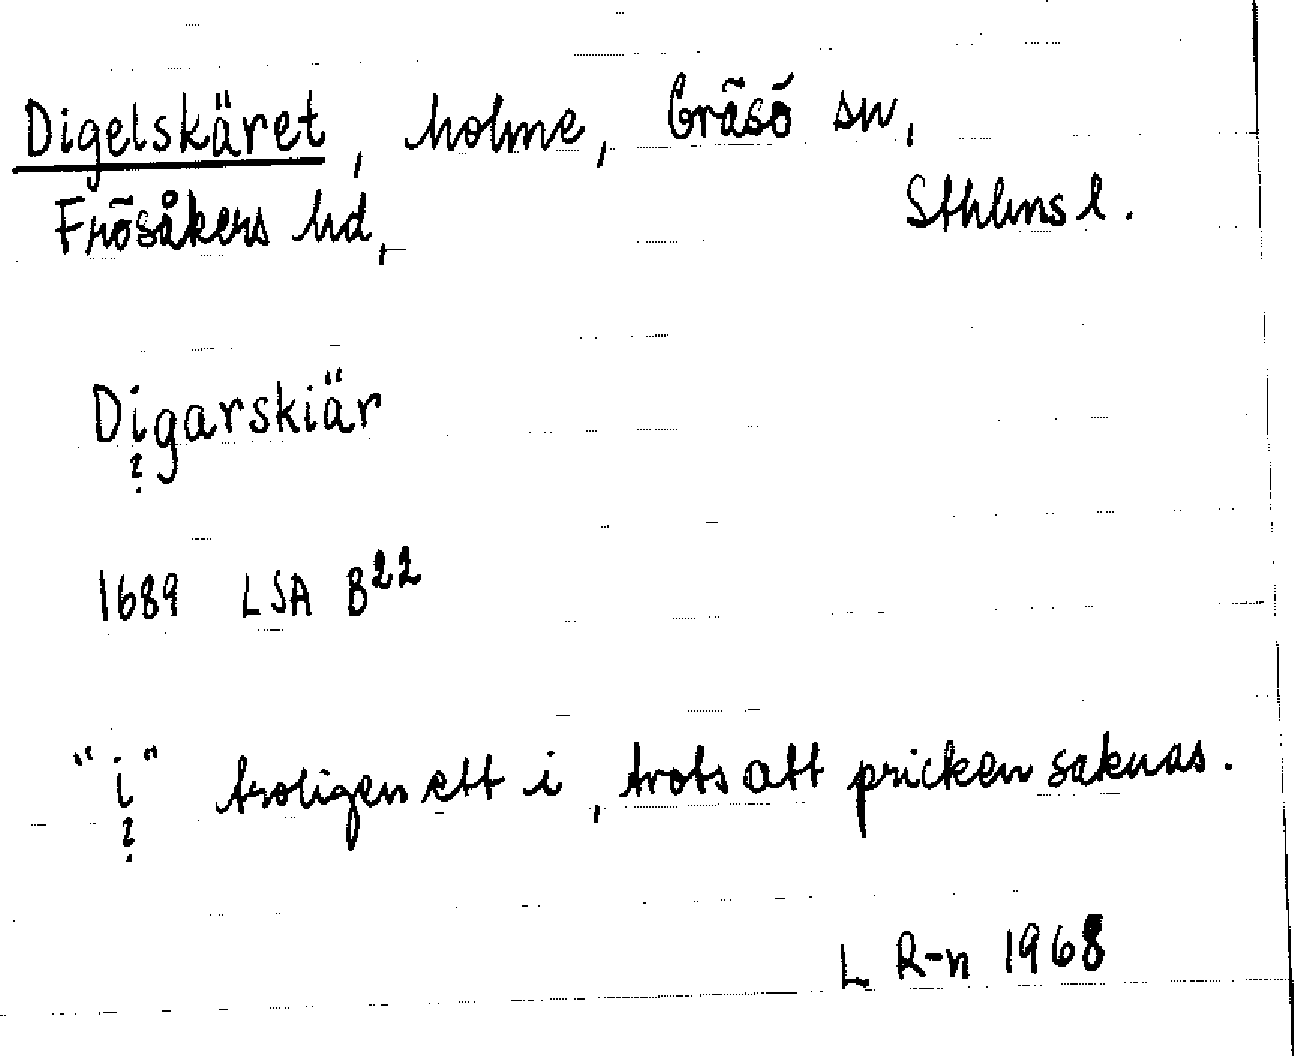 Digelskäret, holme, Gräsö sn,
Frösåkers hd, Sthlms l.
Digarskiär
?
1689 LSA B22
"i" troligen ett i, trots att pricken saknas.
?
L R-n 1968